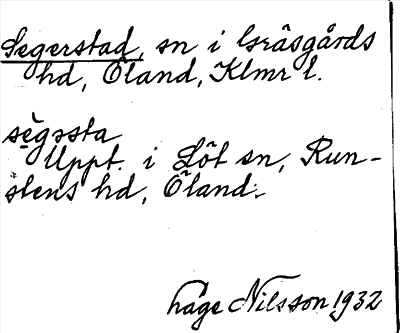 Segerstad, sn i Gräsgårds
hd, Öland, Klmr l.
sègəsta
Uppt. i Löt sn, Run-
stens hd, Öland.
Hage Nilsson 1932